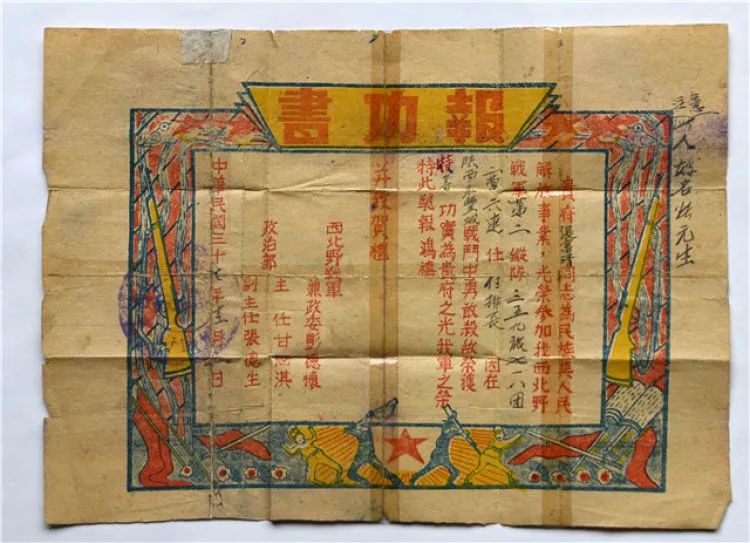 報功書
貴府張富清同志為民族與人民
解放事業，光榮參加我西北野
戰軍第二縱隊三五九旅七一八團
二營六連任 任排長 因在
陝西永豐城戰鬥中勇敢殺敵榮獲
特等 功實為貴府之光我軍之榮
特此馳報鴻禧
并致賀禮
西北野戰軍
兼政委彭德懷
政治部
主任甘泗淇
副主任張德生
中華民國三十七年十二月 日
注意